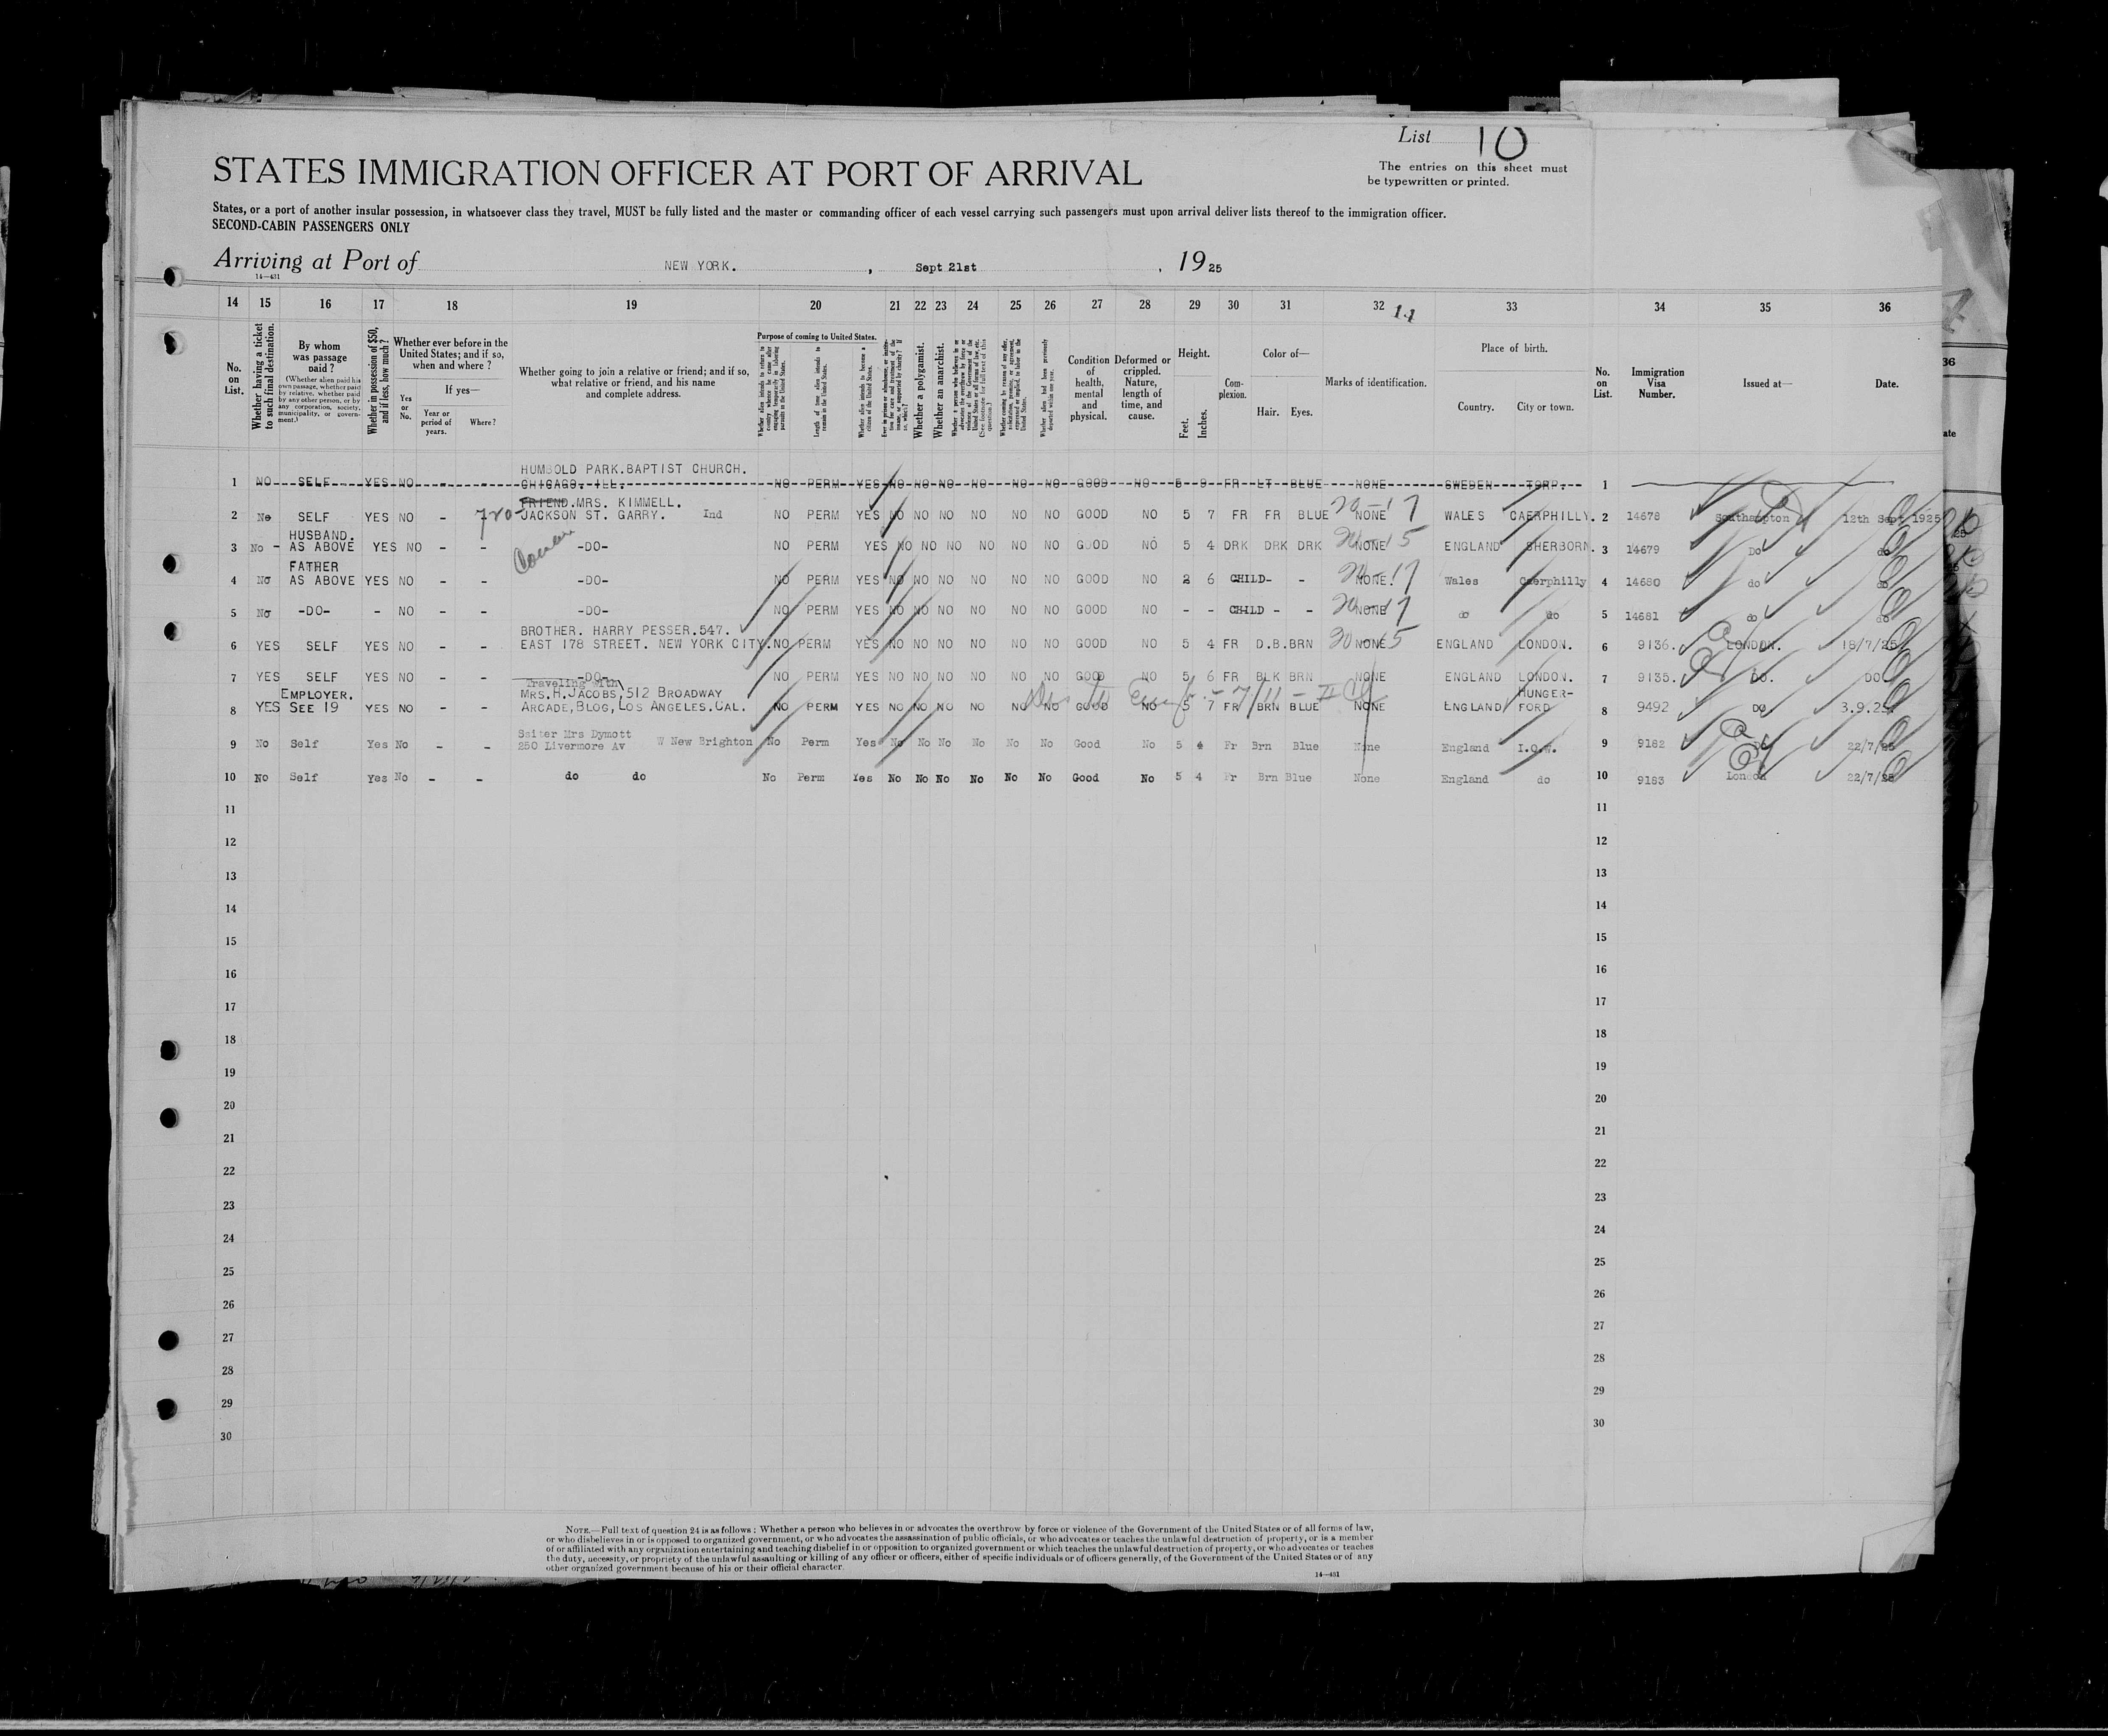 List 10
The entries on this sheet must
be typewritten or printed.
STATES IMMIGRATION OFFICER AT PORT OF ARRIVAL
States, or a port of another insular possession, in whatsoever class they travel, MUST be fully listed and the master or commanding officer of each vessel carrying such passengers must upon arrival deliver lists thereof to the immigration officer.
SECOND-CABIN PASSENGERS ONLY
Arriving at Port of NEW YORK. , Sept 21st , 1925
14—431
14 15 16 17 18 19 20 21 22 23 24 25 26 27 28 29 30 31 32 11 33 34 35 36
No. on List.
Whether having a ticket to such final destination.
By whom was passage paid?
(Whether alien paid his own passage, whether paid by relative, whether paid by any other person, or by any corporation, society, municipality, or government.)
Whether in possession of $50, and if less, how much?
Whether ever before in the United States; and if so, when and where?
Yes or No.
If yes—
Year or period of years.
Where?
Whether going to join a relative or friend; and if so, what relative or friend, and his name and complete address.
Purpose of coming to United States.
Whether alien intends to return to country whence he came after engaging temporarily in laboring pursuits in the United States.
Length of time alien intends to remain in the United States.
Whether alien intends to become a citizen of the United States.
Whether a polygamist.
Whether an anarchist.
Whether coming by reason of any offer, solicitation, promise, or agreement, expressed or implied, to labor in the United States.
Whether alien had been previously deported within one year.
Condition of health, mental and physical.
Deformed or crippled. Nature, length of time, and cause.
Height.
Feet. Inches.
Complexion.
Color of—
Hair. Eyes.
Marks of identification.
Place of birth.
Country. City or town.
No. on List.
Immigration Visa Number.
Issued at—
Date.
HUMBOLD PARK.BAPTIST CHURCH.
1 NO SELF YES NO - - CHICAGO. ILL. NO PERM YES NO NO NO NO NO NO GOOD NO 5 9 FR LT BLUE NONE SWEDEN TORP. 1
FRIEND.MRS. KIMMELL.
2 No SELF YES NO - 720- JACKSON ST. GARRY. Ind NO PERM YES NO NO NO NO NO NO GOOD NO 5 7 FR FR BLUE 20-17 NONE WALES CAERPHILLY. 2 14678 Southampton 12th Sept 1925
HUSBAND.
3 No - AS ABOVE YES NO - - -DO- NO PERM YES NO NO NO NO NO NO GOOD NO 5 4 DRK DRK DRK NONE ENGLAND SHERBORN. 3 14679 Do do
FATHER
4 No AS ABOVE YES NO - - -DO- NO PERM YES NO NO NO NO NO NO GOOD NO 2 6 CHILD- - NONE. Wales Caerphilly 4 14680 do do
5 No -DO- - NO - - -DO- NO PERM YES NO NO NO NO NO NO GOOD NO - - CHILD - - NONE do do 5 14681 do do
BROTHER. HARRY PESSER.547.
6 YES SELF YES NO - - EAST 178 STREET. NEW YORK CITY. NO PERM YES NO NO NO NO NO NO GOOD NO 5 4 FR D.B.BRN NONE ENGLAND LONDON. 6 9136. LONDON. 18/7/25
7 YES SELF YES NO - - -DO- NO PERM YES NO NO NO NO NO NO GOOD NO 5 6 FR BLK BRN NONE ENGLAND LONDON. 7 9135. DO. DO
Traveling with
EMPLOYER. MRS.H.JACOBS,512 BROADWAY HUNGER-
8 YES SEE 19 YES NO - - ARCADE,BLDG,LOS ANGELES.CAL. NO PERM YES NO NO NO NO NO NO GOOD NO 5 7 FR BRN BLUE NONE ENGLAND FORD 8 9492 DO. 3.9.25
Ssiter Mrs Dymott
9 No Self Yes No - - 250 Livermore Av W New Brighton No Perm Yes No No No No No No Good No 5 4 Fr Brn Blue None England I.O.W. 9 9182 22/7/25
10 No Self Yes No - - do do No Perm Yes No No No No No No Good No 5 4 Fr Brn Blue None England do 10 9183 London 22/7/25
11 11
12 12
13 13
14 14
15 15
16 16
17 17
18 18
19 19
20 20
21 21
22 22
23 23
24 24
25 25
26 26
27 27
28 28
29 29
30 30
NOTE.—Full text of question 24 is as follows: Whether a person who believes in or advocates the overthrow by force or violence of the Government of the United States or of all forms of law,
or who disbelieves in or is opposed to organized government, or who advocates the assassination of public officials, or who advocates or teaches the unlawful destruction of property, or is a member
of or affiliated with any organization entertaining and teaching disbelief in or opposition to organized government or which teaches the unlawful destruction of property, or who advocates or teaches
the duty, necessity, or propriety of the unlawful assaulting or killing of any officer or officers, either of specific individuals or of officers generally, of the Government of the United States or of any
other organized government because of his or their official character.
14—431